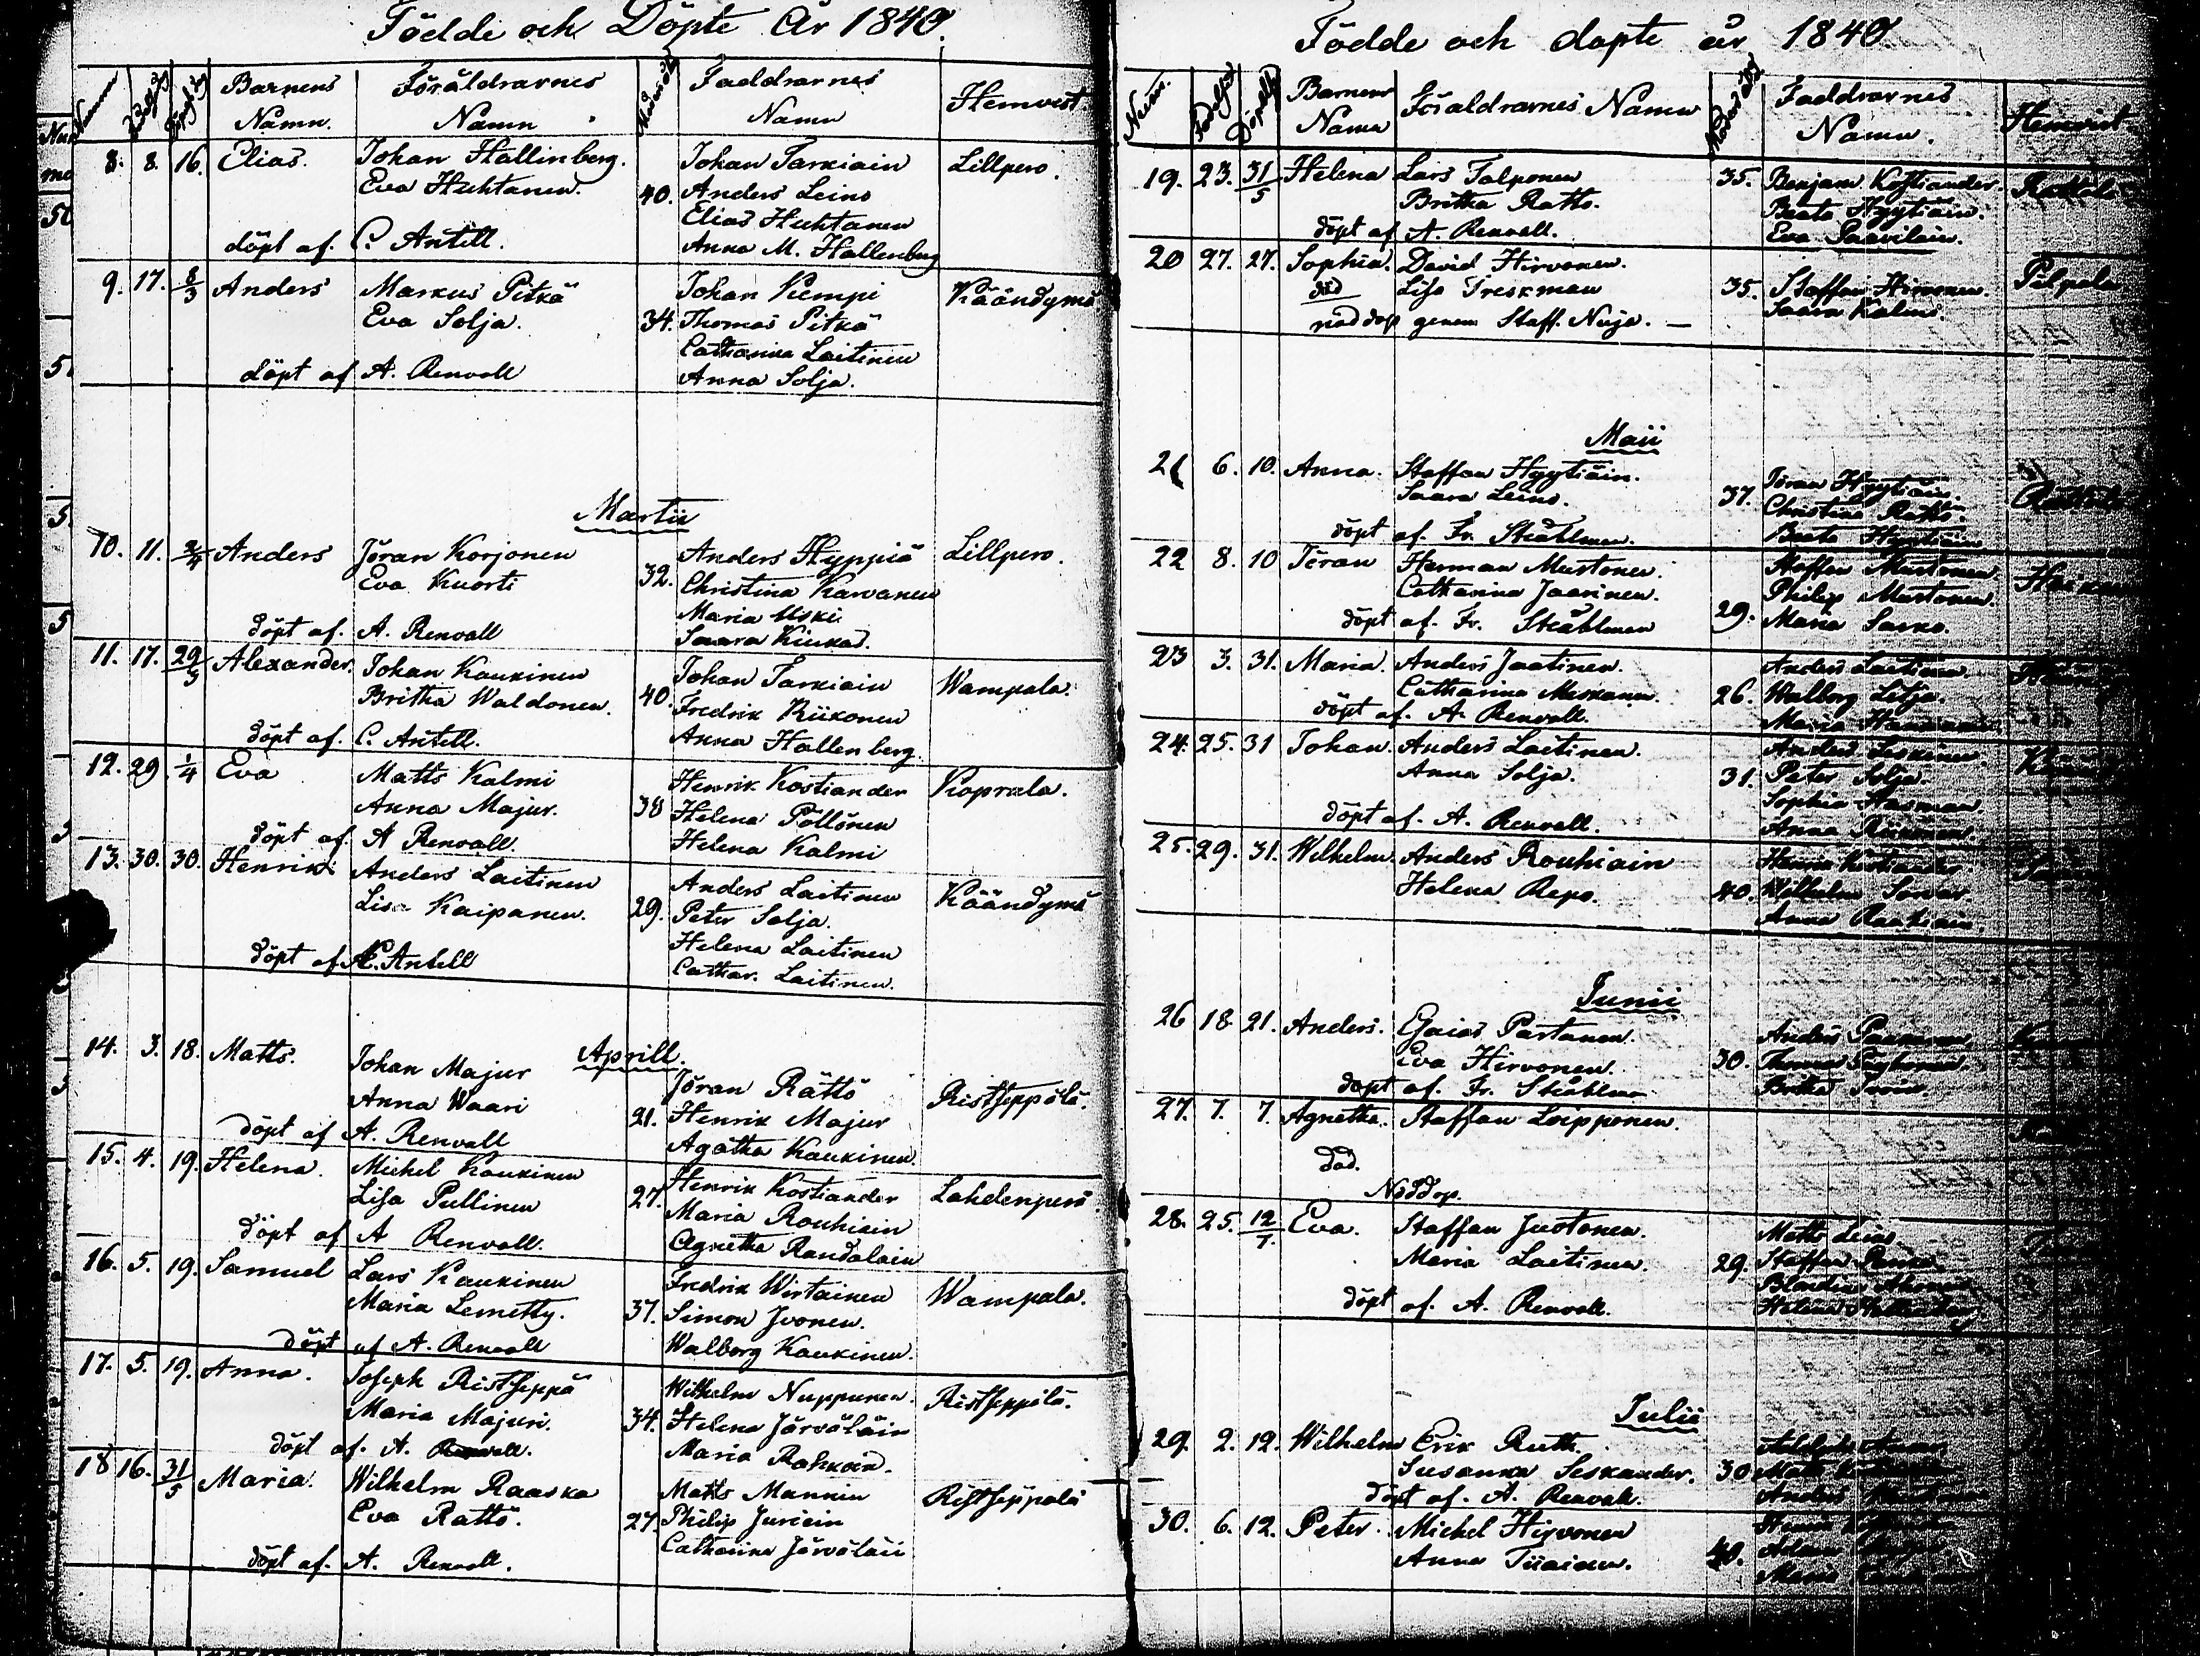 Födde och Döpte År 1840.
Numm Födelsedag Döpelsedag Barnens Namn. Föräldrarnes Namn Modrens ålder Faddrarnes Namn Hemvist.
8. 8. 16. Elias. Johan Hallinberg. Johan Tarkiain Lillpero.
Eva Huhtanen. 40. Anders Leino
Elias Huhtanen
döpt af. C. Antell. Anna M. Hallenberg
9. 17. 8/3 Anders Markus Pitkä Johan Kempi Käändymä.
Eva Solja. 34. Thomas Pitkä
Catharina Laitinen
döpt af A. Renvall Anna Solja.
Martii
10. 11. 2/4 Anders Jöran Korjonen Anders Hyppiä Lillpero.
Eva Kuorti 32. Christina Karvanen
Maria Uski.
döpt af. A. Renvall Saara Kiukas.
11. 17. 29/3 Alexander. Johan Kaukinen Johan Tarkiain Wampala.
Britha Waldonen. 40. Fredrik Riikonen
döpt af. C. Antell. Anna Hallenberg.
12. 29 1/4 Eva Matts Kalmi Henrik Kostiander Koprala.
Anna Majur. 38 Helena Pöllönen
döpt af. A Renvall. Helena Kalmi
13. 30. 30. Henrik Anders Laitinen Anders Laitinen Käändymä
Lisa Kaipanen. 29. Peter Solja.
Helena Laitinen
döpt af C. Antell Cathar. Laitinen.
Aprill.
14. 3. 18. Matts. Johan Majur Jöran Rättö Ristseppälä.
Anna Waari 21. Henrik Majur
döpt af A. Renvall Agatha Kaukinen.
15. 4. 19. Helena. Michel Kaukinen Henrik Kostiander Lahdenperä.
Lisa Pullinen 27. Maria Rouhiain
döpt af A Renvall. Agnetha Randalain
16. 5. 19. Samuel Lars Kaukinen Fredrik Wirtainen Wampala.
Maria Lemetty. 37. Simon Ivonen.
döpt af A. Renvall Walborg Kaukinen.
17. 5. 19. Anna. Joseph Ristseppä Wilhelm Nuppunen. Ristseppälä.
Maria Majuri. 34. Helena Järvöläin
döpt af. A. Renvall. Maria Rahkoin.
18 16. 31/5 Maria. Wilhelm Raaska Matts Mannin Ristseppälä
Eva Rättö. 27. Philip Juriain
döpt af. A. Renvall. Catharina Järvöläin
Födde och döpte år 1840
Num. Födelsed Döpelsed Barnens Namn Föräldrarnes Namn Modrens åld Faddrarnes Namn. Hemvist
19. 23. 31/5 Helena Lars Talponen 35. Benjam. Kostiander.
Britha Ratto. Beata Hyytiäin.
döpt af A. Renvall. Eva Paavilain.
20 27. 27. Sophia. David Hirvonen. Pilpala
död Lisa Treskman 35. Staffan Hirvonen.
nöddöp genom Staff. Nuija. — Saara Kalmi.
Maii
21 6. 10. Anna. Staffan Hyytiäin. Jöran Hyytiäin.
Saara Leino. 37. Christina Rättö.
döpt af. Fr. Ståhlman. Beata Hyytiäin
22 8. 10 Jöran Herman Mustonen. Staffan Mustonen
Catharina Jaarinen. Philip Mustonen.
döpt af. Fr. Ståhlman 29. Maria Sarko.
23 3. 31. Maria. Anders Jaatinen. Anders Laitinen
Catharina Muskanen. 26. Walborg Litja.
döpt af. A. Renvall. Maria
24. 25. 31 Johan. Anders Laitinen. Anders
Anna Solja. 31. Peter Solja.
Sophia Hasman
döpt af. A. Renvall. Anna
25. 29. 31. Wilhelm. Anders Rouhiain
Helena Repo. 40. Wilhelm
Anna
Junii
26 18. 21. Anders. Esaias Partanen. Anders
Eva Hirvonen. 30. Thomas
döpt af. Fr. Ståhlman Britha
27. 7. 7. Agnetha. Staffan Loipponen.
död.
Nöddöp.
28. 25. 12/7. Eva. Staffan Juotonen. Matts Leino
Maria Laitinen. 29. Staffan
döpt af. A. Renvall. Helena
Julii
29. 2. 12. Wilhelm Erik Ruth.
Susanna Seskander. 30 Matts
döpt af. A. Renvall. Anders
30. 6. 12. Peter. Michel Hirvonen
Anna Tiiaian. 40. Adam
Maria